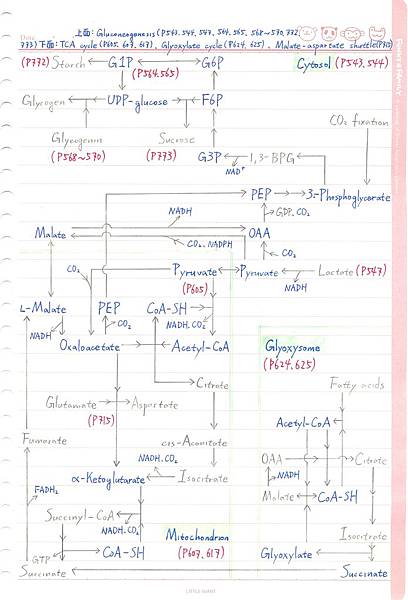 Date 上面: Gluconeogenesis (P543.544, 547, 564, 565, 568~570,772,
773) 下面: TCA cycle (P605. 607. 617), Glyoxylate cycle (P624, 625), Malate-aspartate shuttle (P715)
(P772) Starch G1P G6P Cytosol (P543.544)
(P564.565)
Glycogen UDP-glucose F6P
CO₂ fixation
Glycogenin Sucrose
(P568~570) (P773) G3P 1,3-BPG
NADP⁺
PEP 3-Phosphoglycerate
NADH GDP. CO₂
Malate OAA
CO₂. NADPH CO₂
CO₂ Pyruvate Pyruvate Lactate (P547)
(P605) NADH
L-Malate PEP CoA-SH
NADH CO₂ NADH. CO₂
Oxaloacetate Acetyl-CoA
Glyoxysome
(P624.625)
Citrate Fatty acids
Glutamate Aspartate
(P715)
Acetyl-CoA
Fumarate cis-Aconitate
OAA Citrate
NADH. CO₂ NADH
α-Ketoglutarate Isocitrate
FADH₂ Malate CoA-SH
Succinyl-CoA
NADH. CO₂ Mitochondrion Isocitrate
GTP CoA-SH (P607, 617) Glyoxylate
Succinate Succinate
LITTLE GIANT